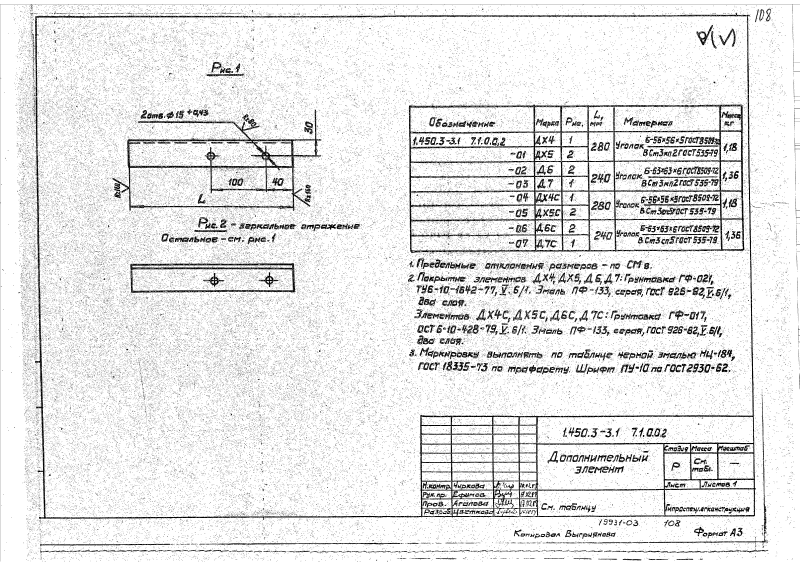 108
Рис.1
2отв. ф15 +0,43
30
100
40
L
Рис.2 - зеркальное отражение
Остальное - см. рис.1
Обозначение Марка Рис. L, мм Материал Масса кг
1.450.3-3.1 7.1.0.0.2 ДХ4 1 280 Уголок Б-56×56×5 ГОСТ 8509-72 / ВСт3кп2 ГОСТ 535-79 1,18
-01 ДХ5 2
-02 Д6 2 240 Уголок Б-63×63×6 ГОСТ 8509-72 / ВСт3кп2 ГОСТ 535-79 1,36
-03 Д7 1
-04 ДХ4С 1 280 Уголок Б-56×56×5 ГОСТ 8509-72 / ГОСТ 535-79 1,18
-05 ДХ5С 2
-06 Д6С 2 240 Уголок Б-63×63×6 ГОСТ 8509-72 / ВСт3сп5 ГОСТ 535-79 1,36
-07 Д7С 1
1. Предельные отклонения размеров - по
2. Покрытие элементов ДХ4, ДХ5, Д6, Д7: Грунтовка ГФ-021,
ТУ6-10-1642-77, V. 6/1. Эмаль ПФ-133, серая, ГОСТ 926-82, V. 6/1,
два слоя.
Элементов ДХ4С, ДХ5С, Д6С, Д7С: Грунтовка ГФ-017,
ОСТ 6-10-428-79, V. 6/1. Эмаль ПФ-133, серая, ГОСТ 926-82, V. 6/1,
два слоя.
3. Маркировку выполнять по таблице черной эмалью НЦ-184,
ГОСТ 18335-73 по трафарету. Шрифт ПУ-10 по ГОСТ 2930-62.
1.450.3-3.1 7.1.0.0.2
Дополнительный
элемент
Стадия Масса Масштаб
Р См. табл. —
Лист Листов 1
Н.контр. Чиркова
Рук.пр. Ефимов
Пров. Агапова
Разраб. Цветкова
См. таблицу
Гипроспецлегконструкция
19931-03 108
Копировал Формат А3